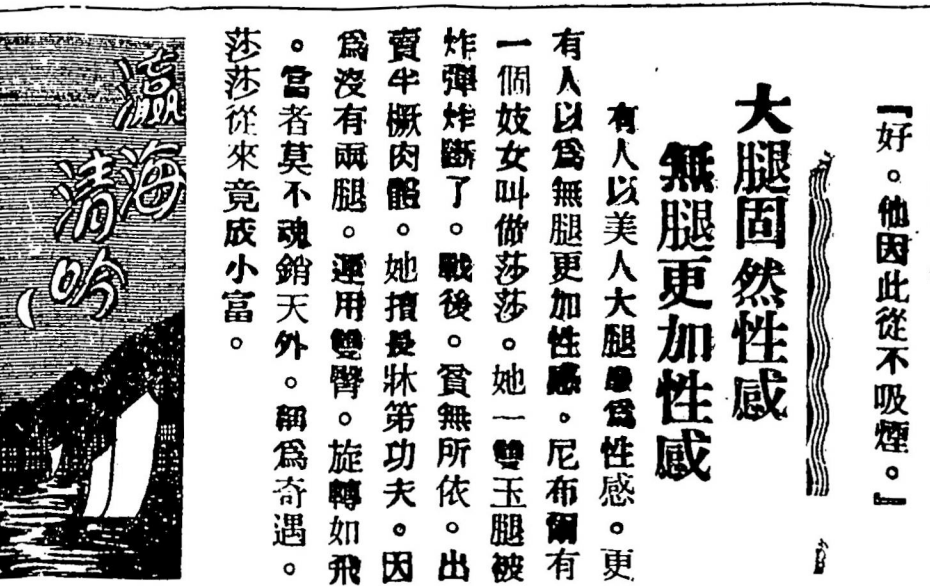 『好。他因此從不吸煙。』
大腿固然性感
無腿更加性感
有人以美人大腿最爲性感。更
有人以爲無腿更加性感。尼布爾有
一個妓女叫做莎莎。她一雙玉腿被
炸彈炸斷了。戰後。貧無所依。出
賣半橛肉體。她擅長牀第功夫。因
爲沒有兩腿。運用雙臀。旋轉如飛
。當者莫不魂銷天外。稱爲奇遇。
莎莎從來竟成小富。
瀛海
清吟